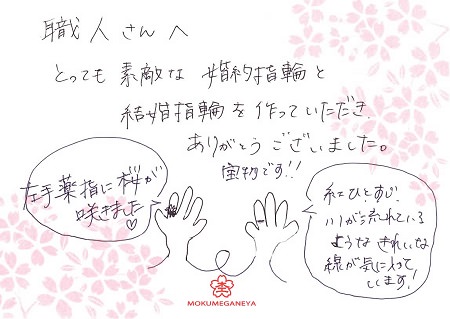 職人さんへ
とっても 素敵な 婚約指輪と
結婚指輪を作っていただき
ありがとうございました。
宝物です!!
左手薬指に桜が
咲きました♡
紅ひとすじ
川が流れている
ような きれいな
線が気に入って
います!
MOKUMEGANEYA